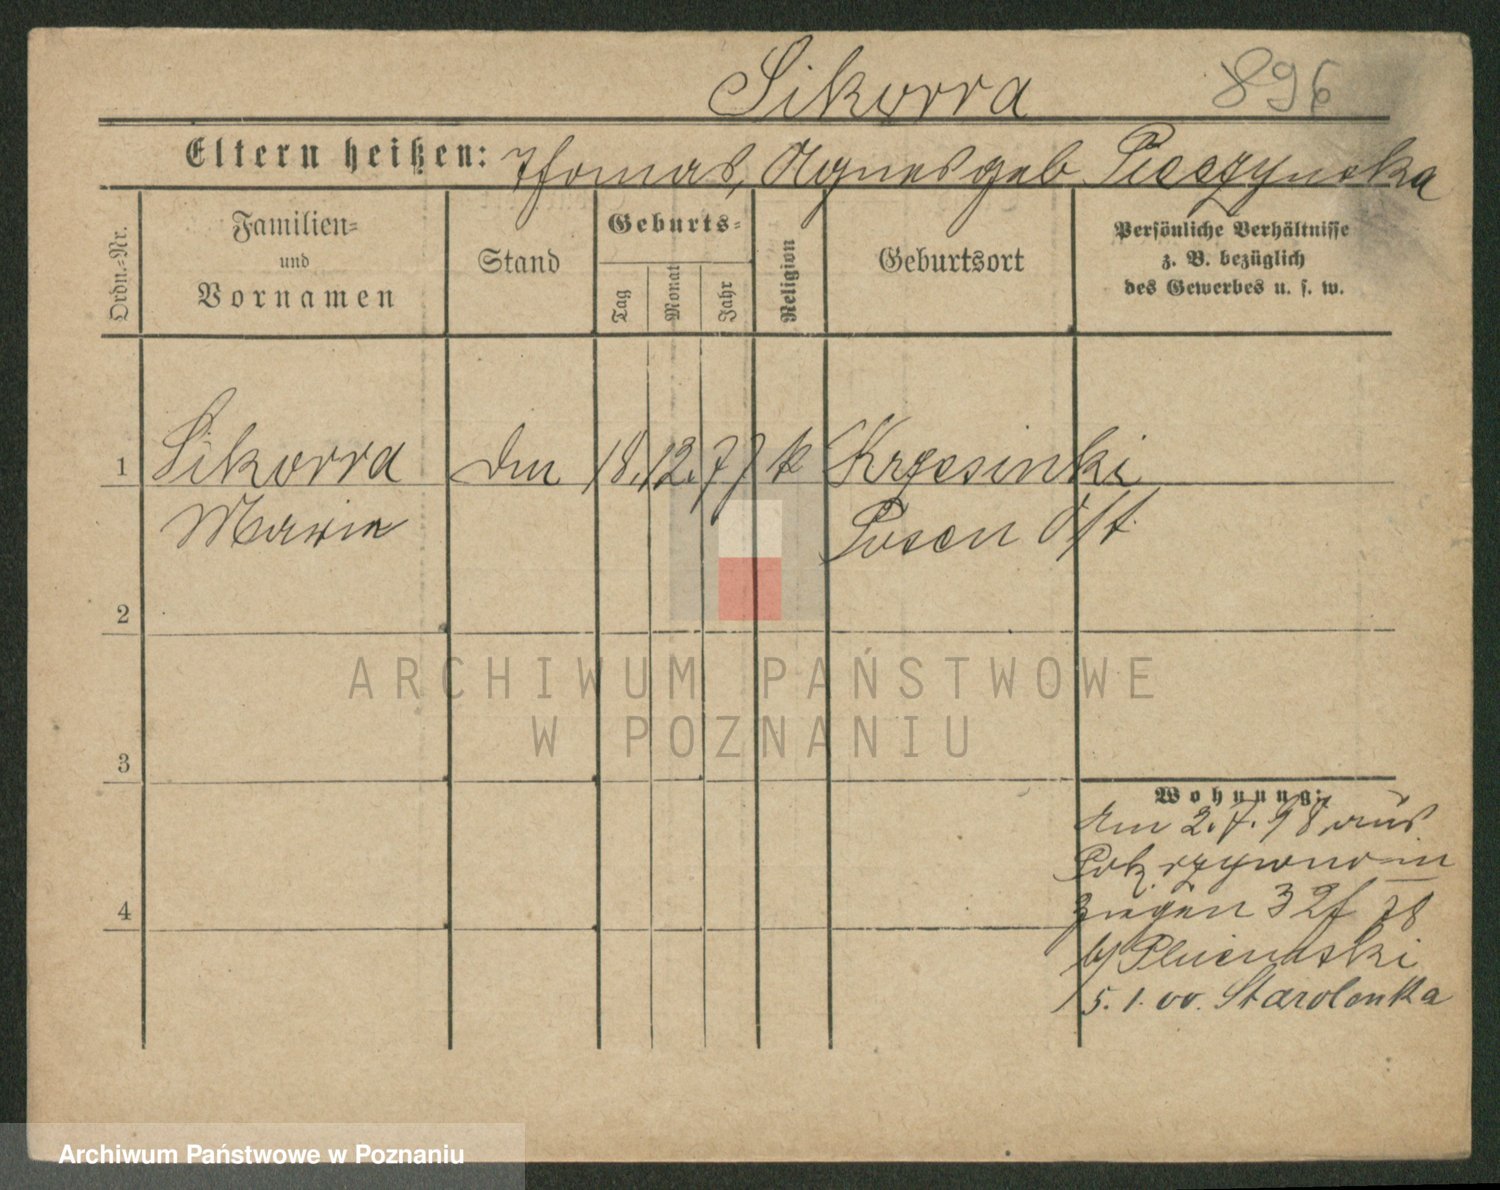 Sikorra 896
Eltern heißen: Thomas, Agnes geb. Pieczynska
Ordn.-Nr.
Familien-
und
Vornamen
Stand
Geburts-
Tag
Monat
Jahr
Religion
Geburtsort
Persönliche Verhältnisse
z. B. bezüglich
des Gewerbes u. s. w.
1 Sikorra Dm 18. 12. 77 k Krzesinki
Marie Posen Ost
2
ARCHIWUM PAŃSTWOWE
W POZNANIU
3
Wohnung:
Am 2. 7. 98 aus
Pokrzywno in
32
5. 1. 00. Starolenka
4
Archiwum Państwowe w Poznaniu